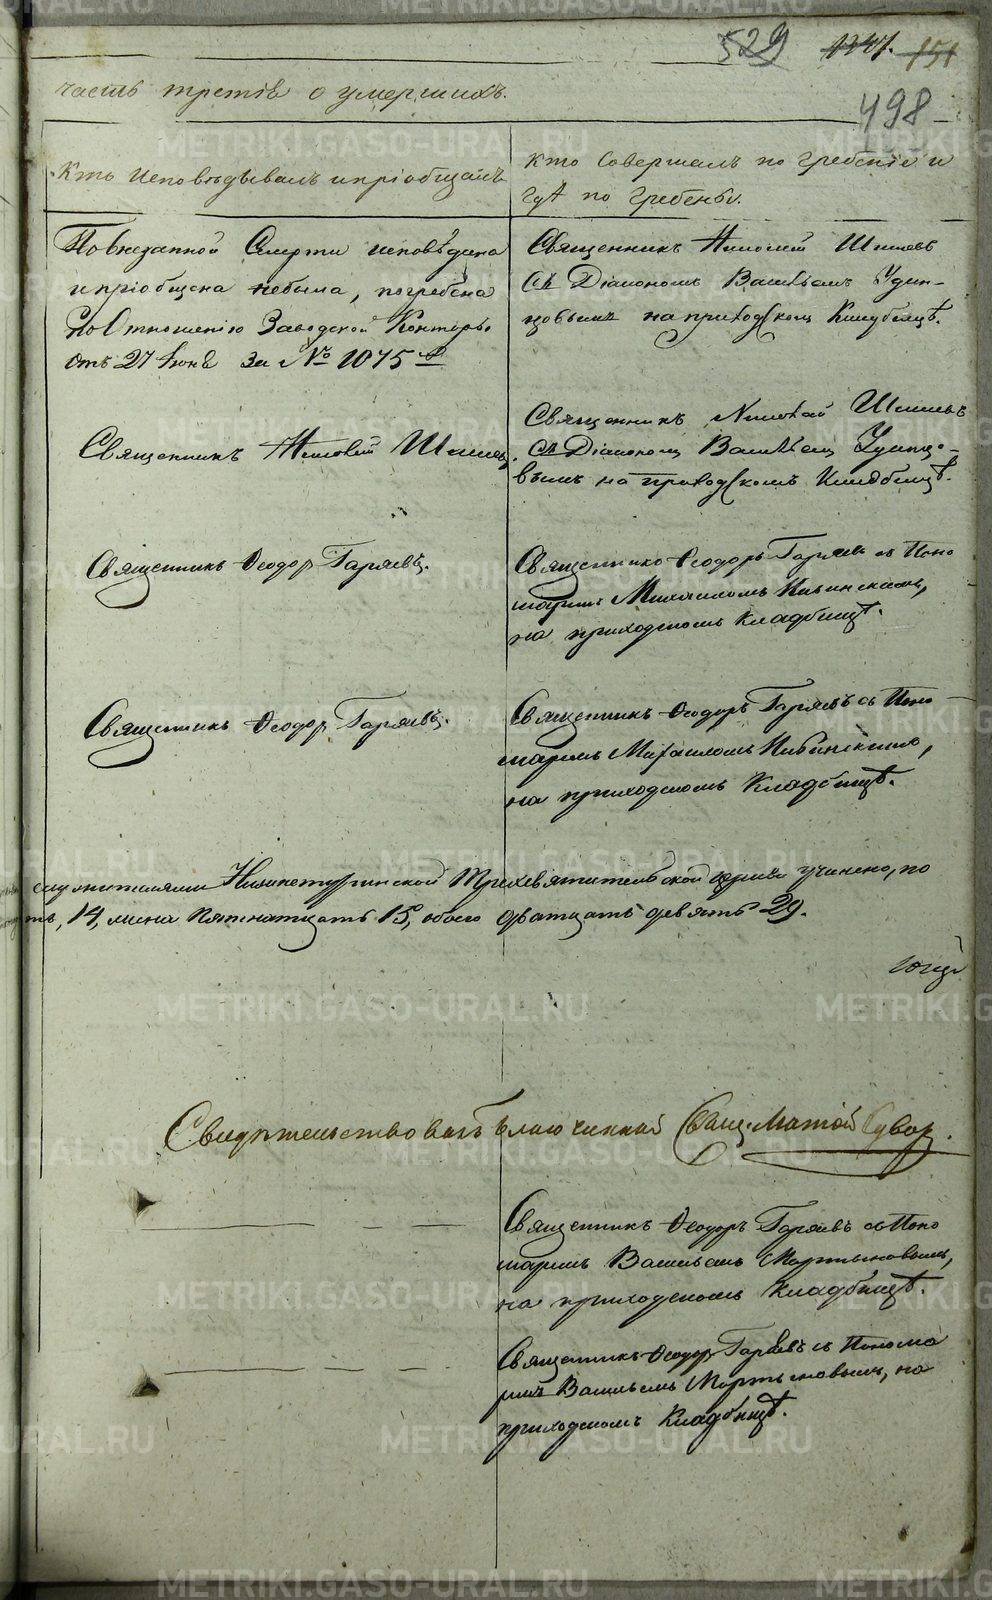 529 1347. 151
498
часть третiя о умершихъ.
Кто исповѣдывалъ и прiобщалъ
Кто совершалъ по гребенiе и
гдѣ по гребены.
По внезапной Смерти исповѣдана
и прiобщена небыла, погребена
По Отношенiю Заводской Конторы
отъ 27 Iюня За № 1075 й
Священникъ Николай Шишевъ
съ Дiакономъ Васильемъ Удин-
цовымъ на приходскомъ Кладбищѣ.
Священникъ Николай Шишевъ.
Священникъ Николай Шишевъ
съ Дiакономъ Васильемъ Удинцо-
вымъ на приходскомъ Кладбищѣ.
Священникъ Ѳеодоръ Гаряевъ.
Священникъ Ѳеодоръ Гаряевъ съ Поно
маремъ Михаиломъ Ильинскимъ,
на приходскомъ кладбищѣ.
Священникъ Ѳеодоръ Гаряевъ.
Священникъ Ѳеодоръ Гаряевъ съ Поно
маремъ Михаиломъ Ильинскимъ,
на приходскомъ Кладбищѣ.
служителями Нижнетуринской Трехсвятительской церкви учинено, по
14, женска Пятнатцать 15, обоего дватцать девять 29.
Свидѣтельствовалъ Благочинный Свящ. Матѳей Сувор.
Священникъ Ѳеодоръ Гаряевъ съ Поно
маремъ Васильемъ Мартыновымъ,
на приходскомъ Кладбищѣ.
Священникъ Ѳеодоръ Гаряевъ съ Понома
ремъ Васильемъ Мартыновымъ, на
приходскомъ Кладбищѣ.
METRIKI.GASO-URAL.RU